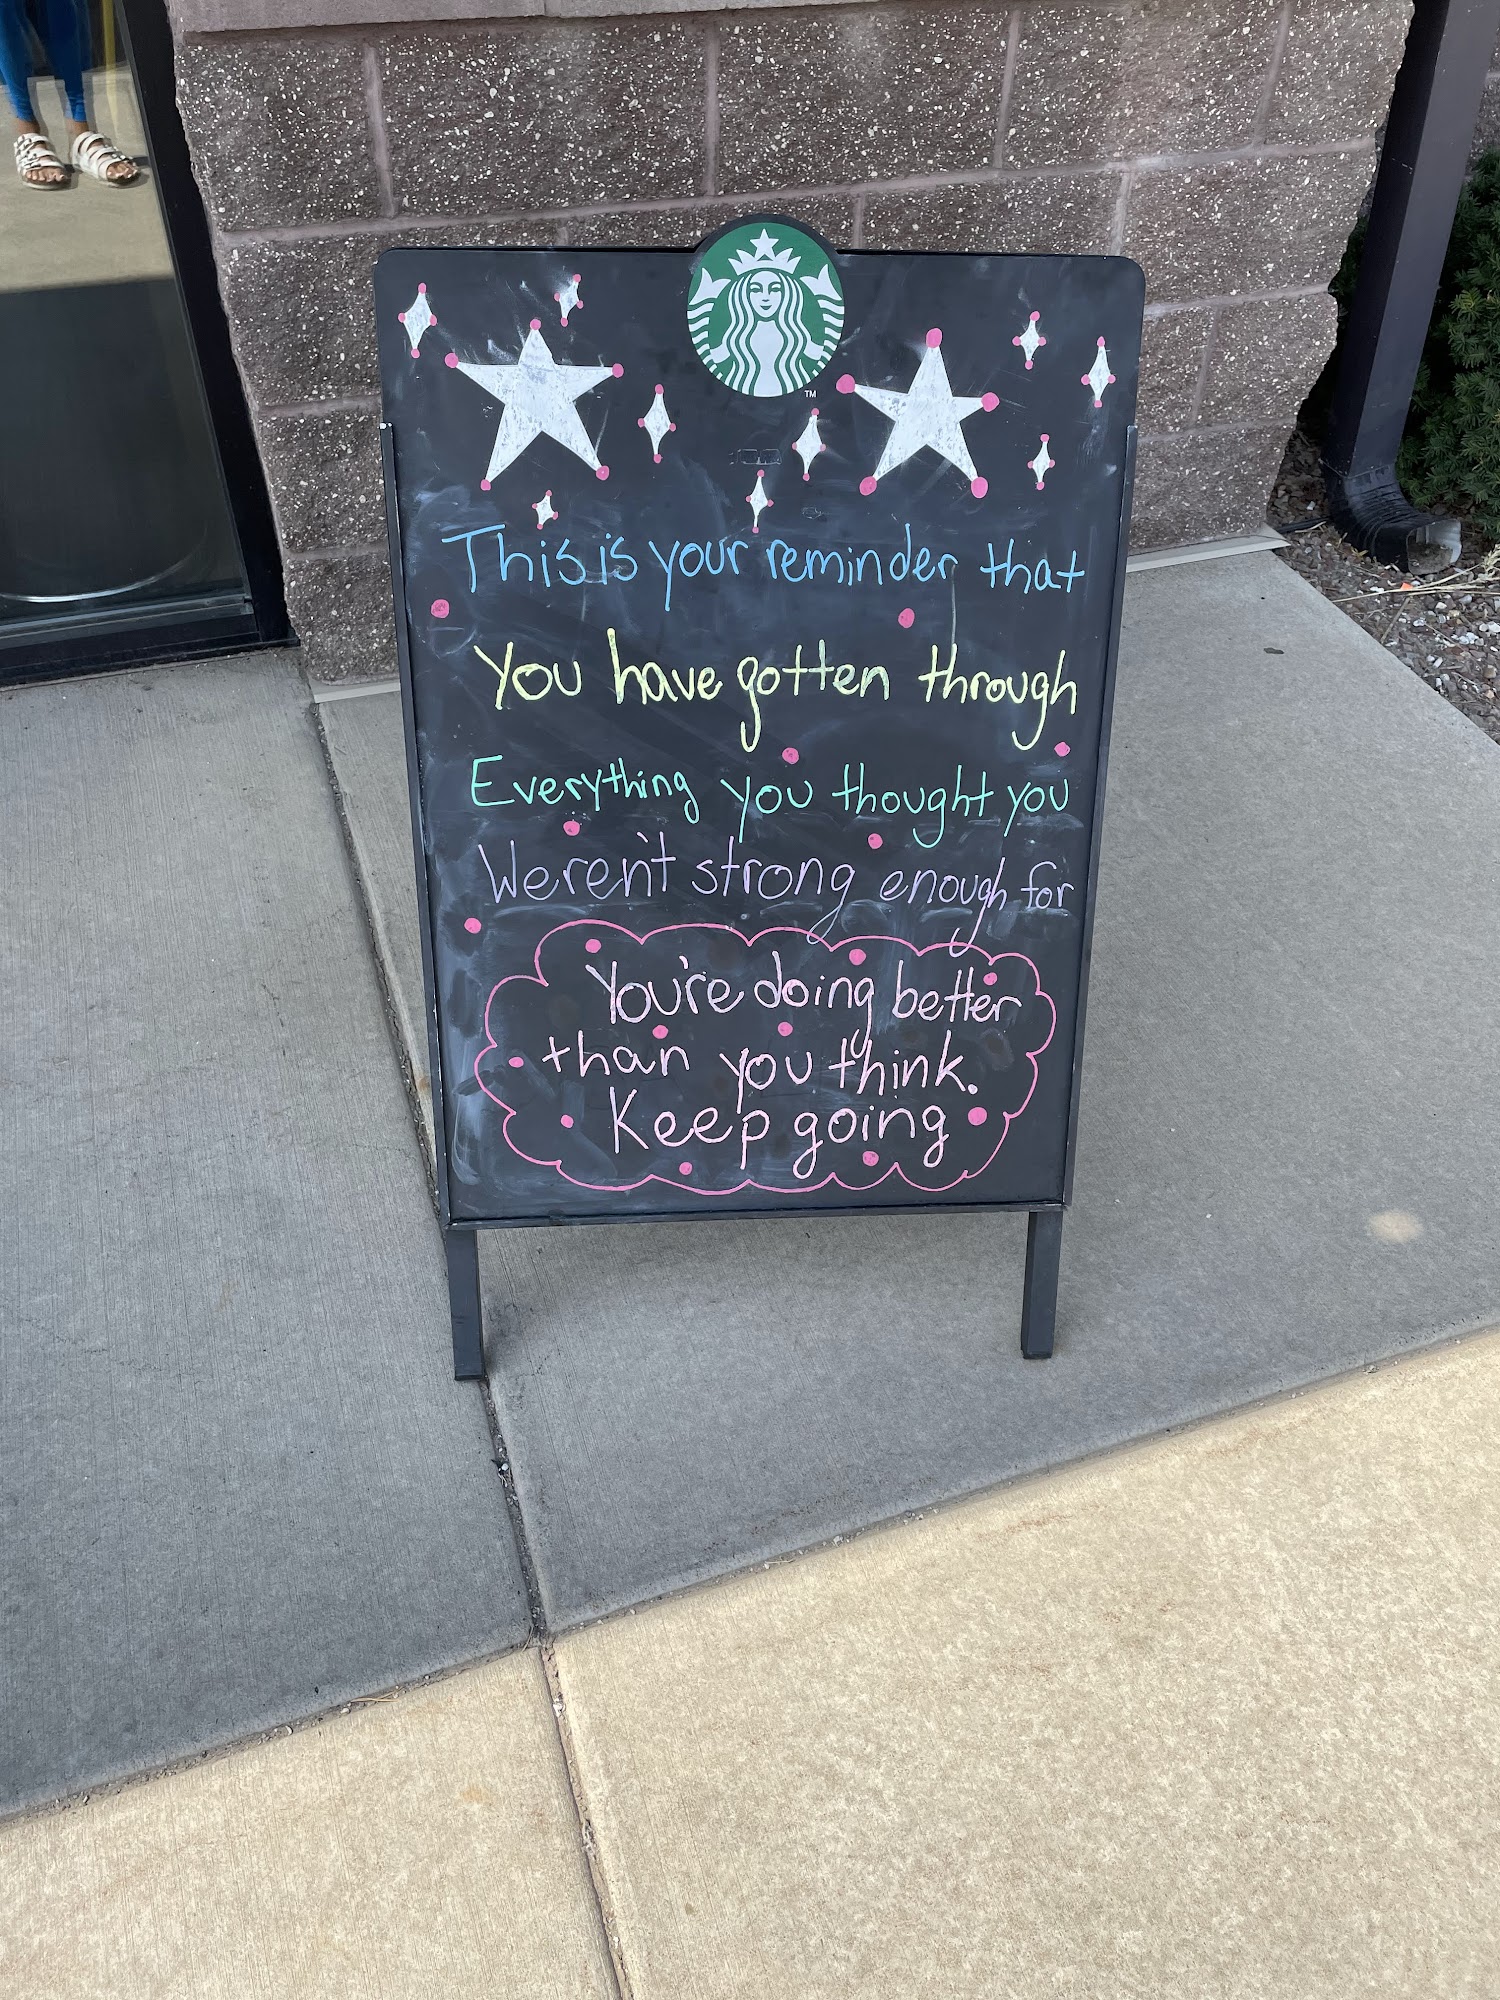 TM
This is your reminder that
You have gotten through
Everything you thought you
Weren't strong enough for
You're doing better
than you think.
Keep going